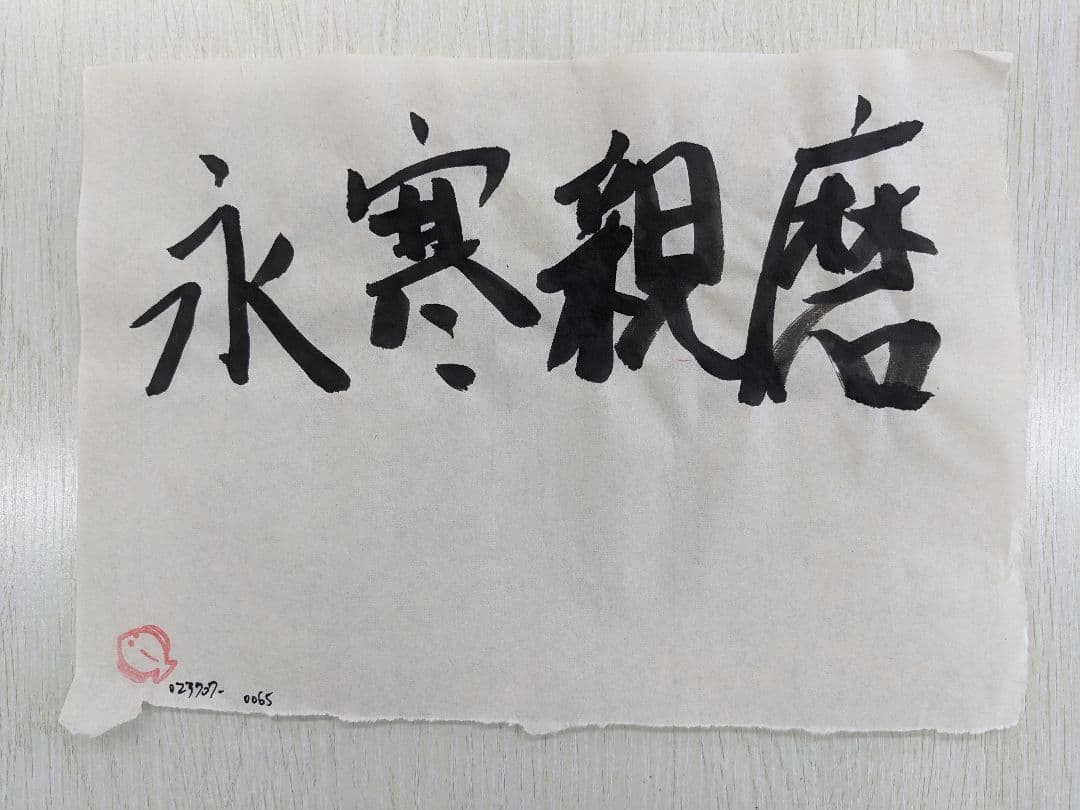 永寒親磨
023707-
0065